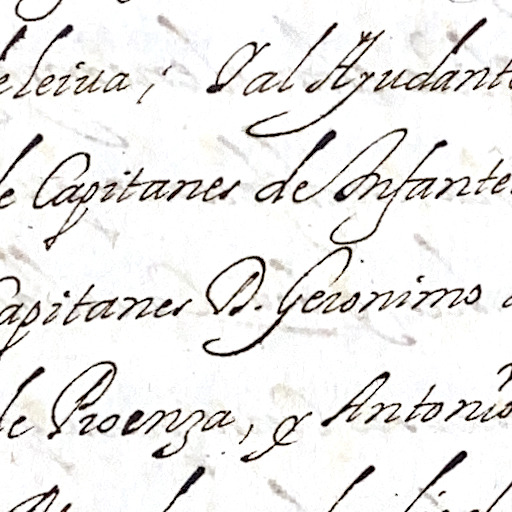 eleiua; Y al Ayudant
de Capitanes de Infante
Capitanes D. Geronimo
de Proenza, y Antonio